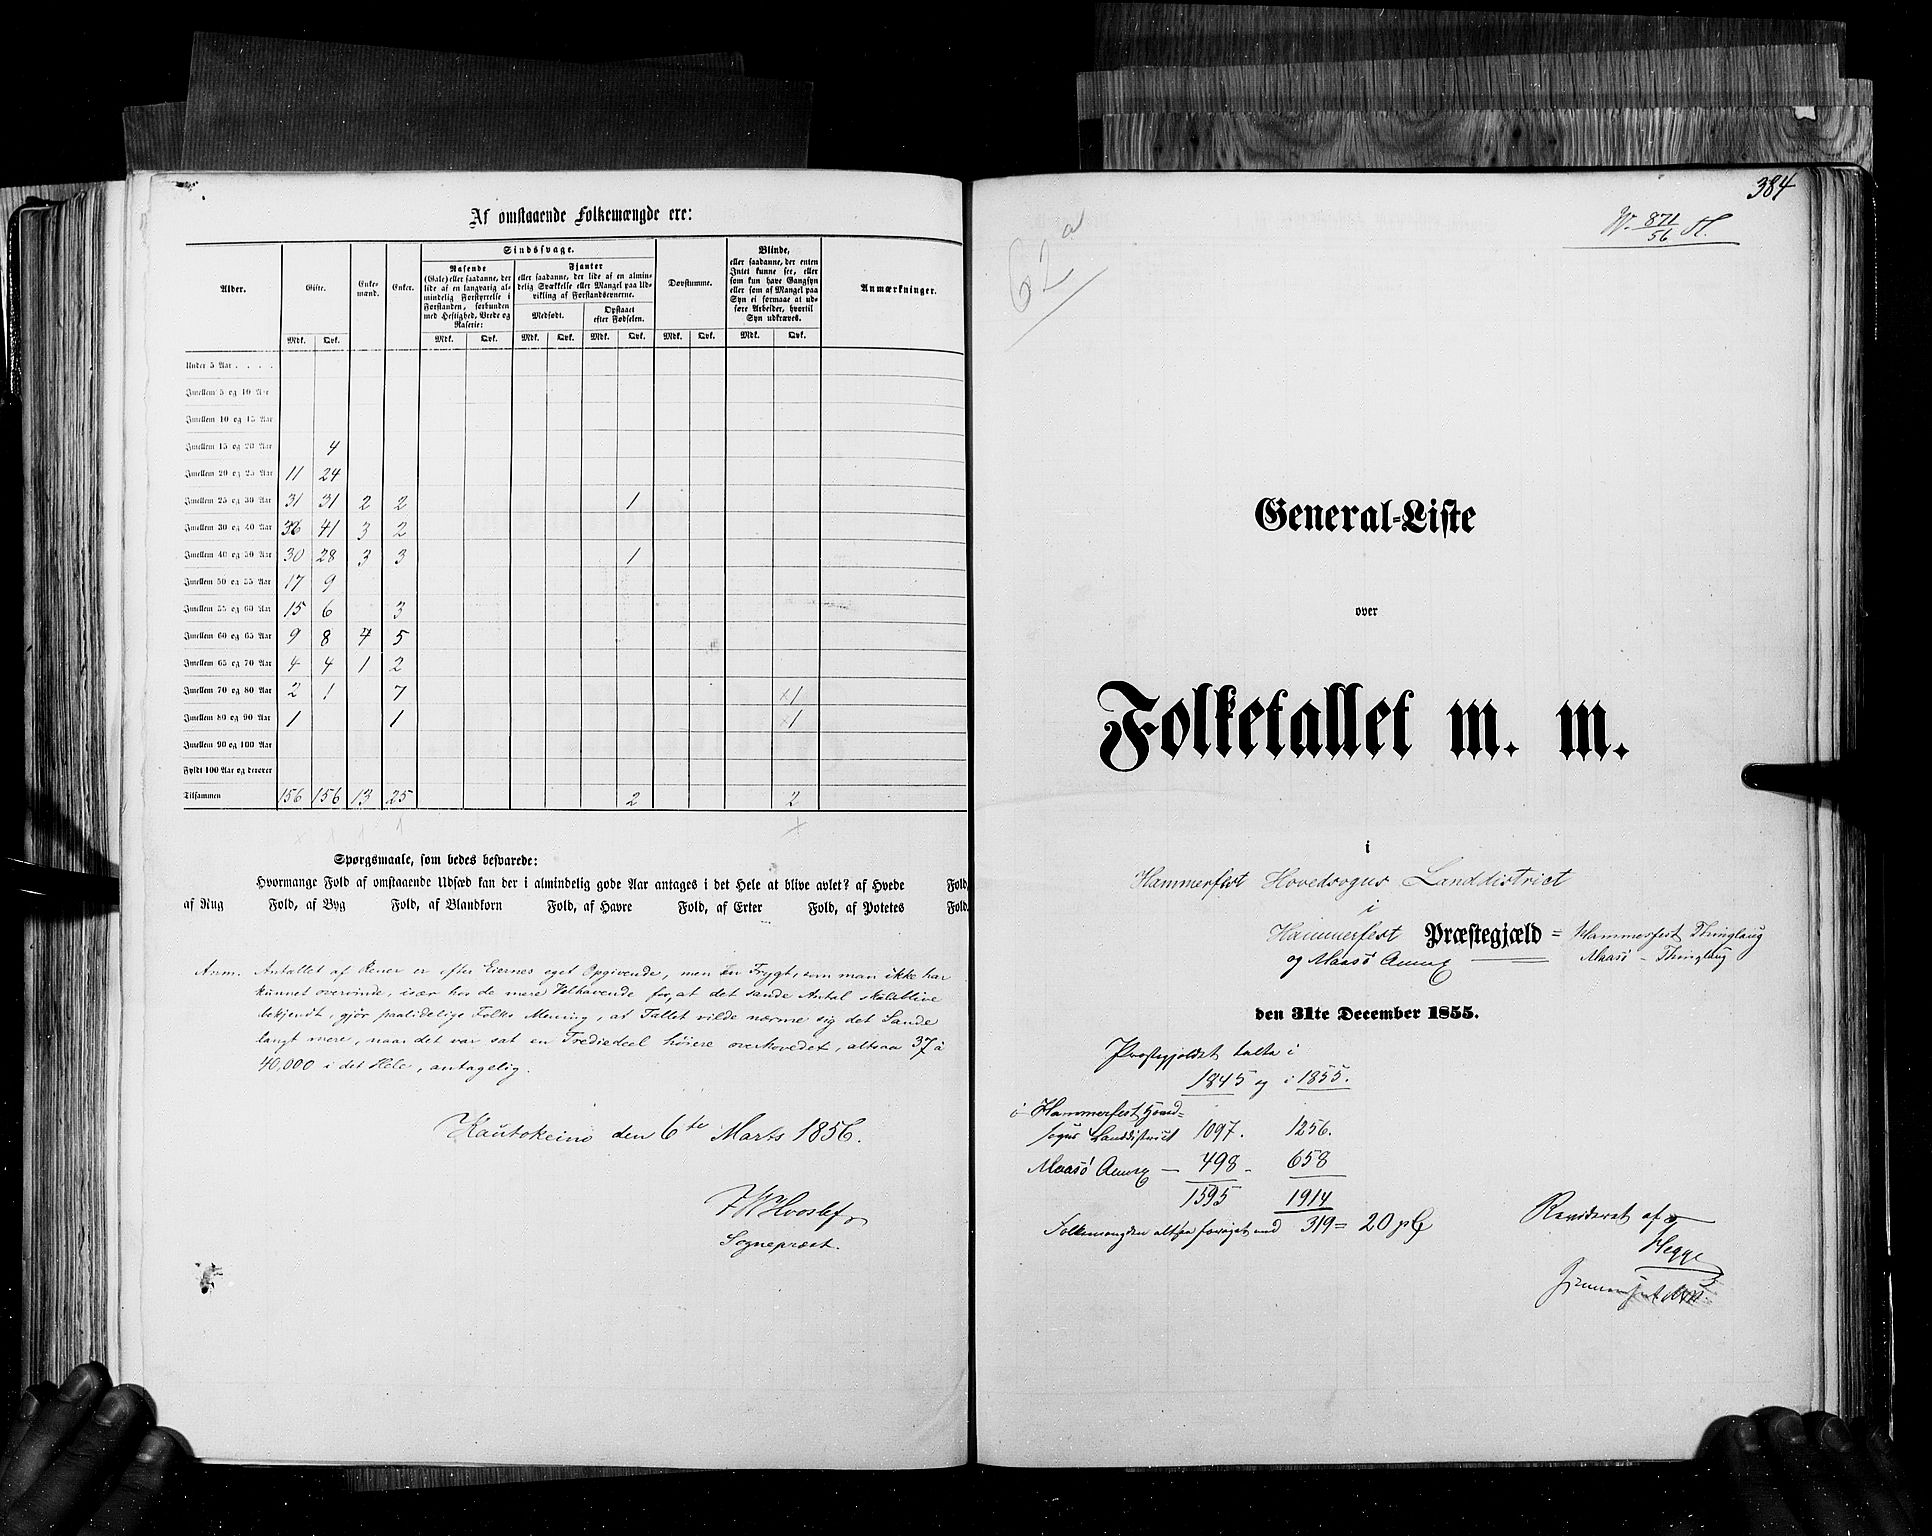 Af omstaaende Folkemængde ere:
Alder. Gifte. Enke-mænd. Enker. Sindssvage. Døvstumme. Blinde, Anmærkninger.
Rasende (Gale) eller saadanne, der lide af en langvarig almindelig Forstyrrelse i Forstanden, forbunden med Heftighed, Vrede og Raserie:
Fjanter eller saadanne, der lide af en almindelig Svækkelse eller Mangel paa Udvikling af Forstandsevnerne.
Medfødt. Opstaaet efter Fødselen.
eller saadanne, der enten Intet kunne see, eller som kun have Gangsyn eller som af Mangel paa Syn ei formaae at udføre Arbeider, hvortil Syn udkræves.
Mdk. Qvk. Mdk. Qvk. Mdk. Qvk. Mdk. Qvk. Mdk. Qvk. Mdk. Qvk.
Under 5 Aar . . . .
Imellem 5 og 10 Aar
Imellem 10 og 15 Aar
Imellem 15 og 20 Aar 4
Imellem 20 og 25 Aar 11 24
Imellem 25 og 30 Aar 31 31 2 2 1
Imellem 30 og 40 Aar 36 41 3 2
Imellem 40 og 50 Aar 30 28 3 3 1
Imellem 50 og 55 Aar 17 9
Imellem 55 og 60 Aar 15 6 3
Imellem 60 og 65 Aar 9 8 4 5
Imellem 65 og 70 Aar 4 4 1 2
Imellem 70 og 80 Aar 2 1 7 ×1
Imellem 80 og 90 Aar 1 1 ×1
Imellem 90 og 100 Aar
Fyldt 100 Aar og derover
Tilsammen 156 156 13 25 2 2
× 1 1 1 ×
Spørgsmaale, som bedes besvarede:
Hvormange Fold af omstaaende Udsæd kan der i almindelig gode Aar antages i det Hele at blive avlet? af Hvede Fold,
af Rug Fold, af Byg Fold, af Blandkorn Fold, af Havre Fold, af Erter Fold, af Potetes Fold.
Anm. Antallet af Rener er efter Eiernes eget Opgivende, men en Frygt, som man ikke har
kunnet overvinde, især hos de mere Velhavende for, at det sande Antal skal blive
bekjendt, gjør paalidelige Folks Mening, at Tallet vilde nærme sig det Sande
langt mere, naar det var sat en Trediedeel høiere overhovedet, altsaa 37 à
40,000 i det Hele, antagelig.
Kautokeino den 6te Marts 1856.
Hvoslef
Sognepræst.
384
W. 871/56 H.
62a
General-Liste
over
Folketallet m. m.
i
Hammerfest Hovedsogns Landdistrict
i
Hammerfest Præstegjæld = Hammerfest Thinglaug
og Maasö Annex Maasö - Thinglaug
den 31te December 1855.
Præstegjældet talte i
1845 og i 1855.
i Hammerfest Hoved=
sogns Landdistrict 1097. 1256.
Maasö Annex — 498 - 658
1595 1914
Folkemængden altsaa forøget med 319 = 20 pC
Revideret af
Hegge